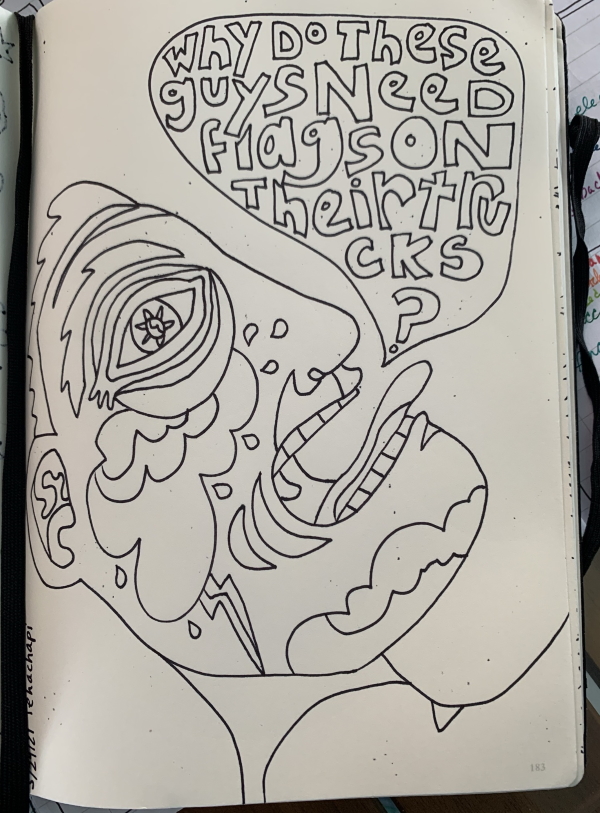 Why Do These
guys Need
flags ON
Their tru
cks
?
Tehachapi
183